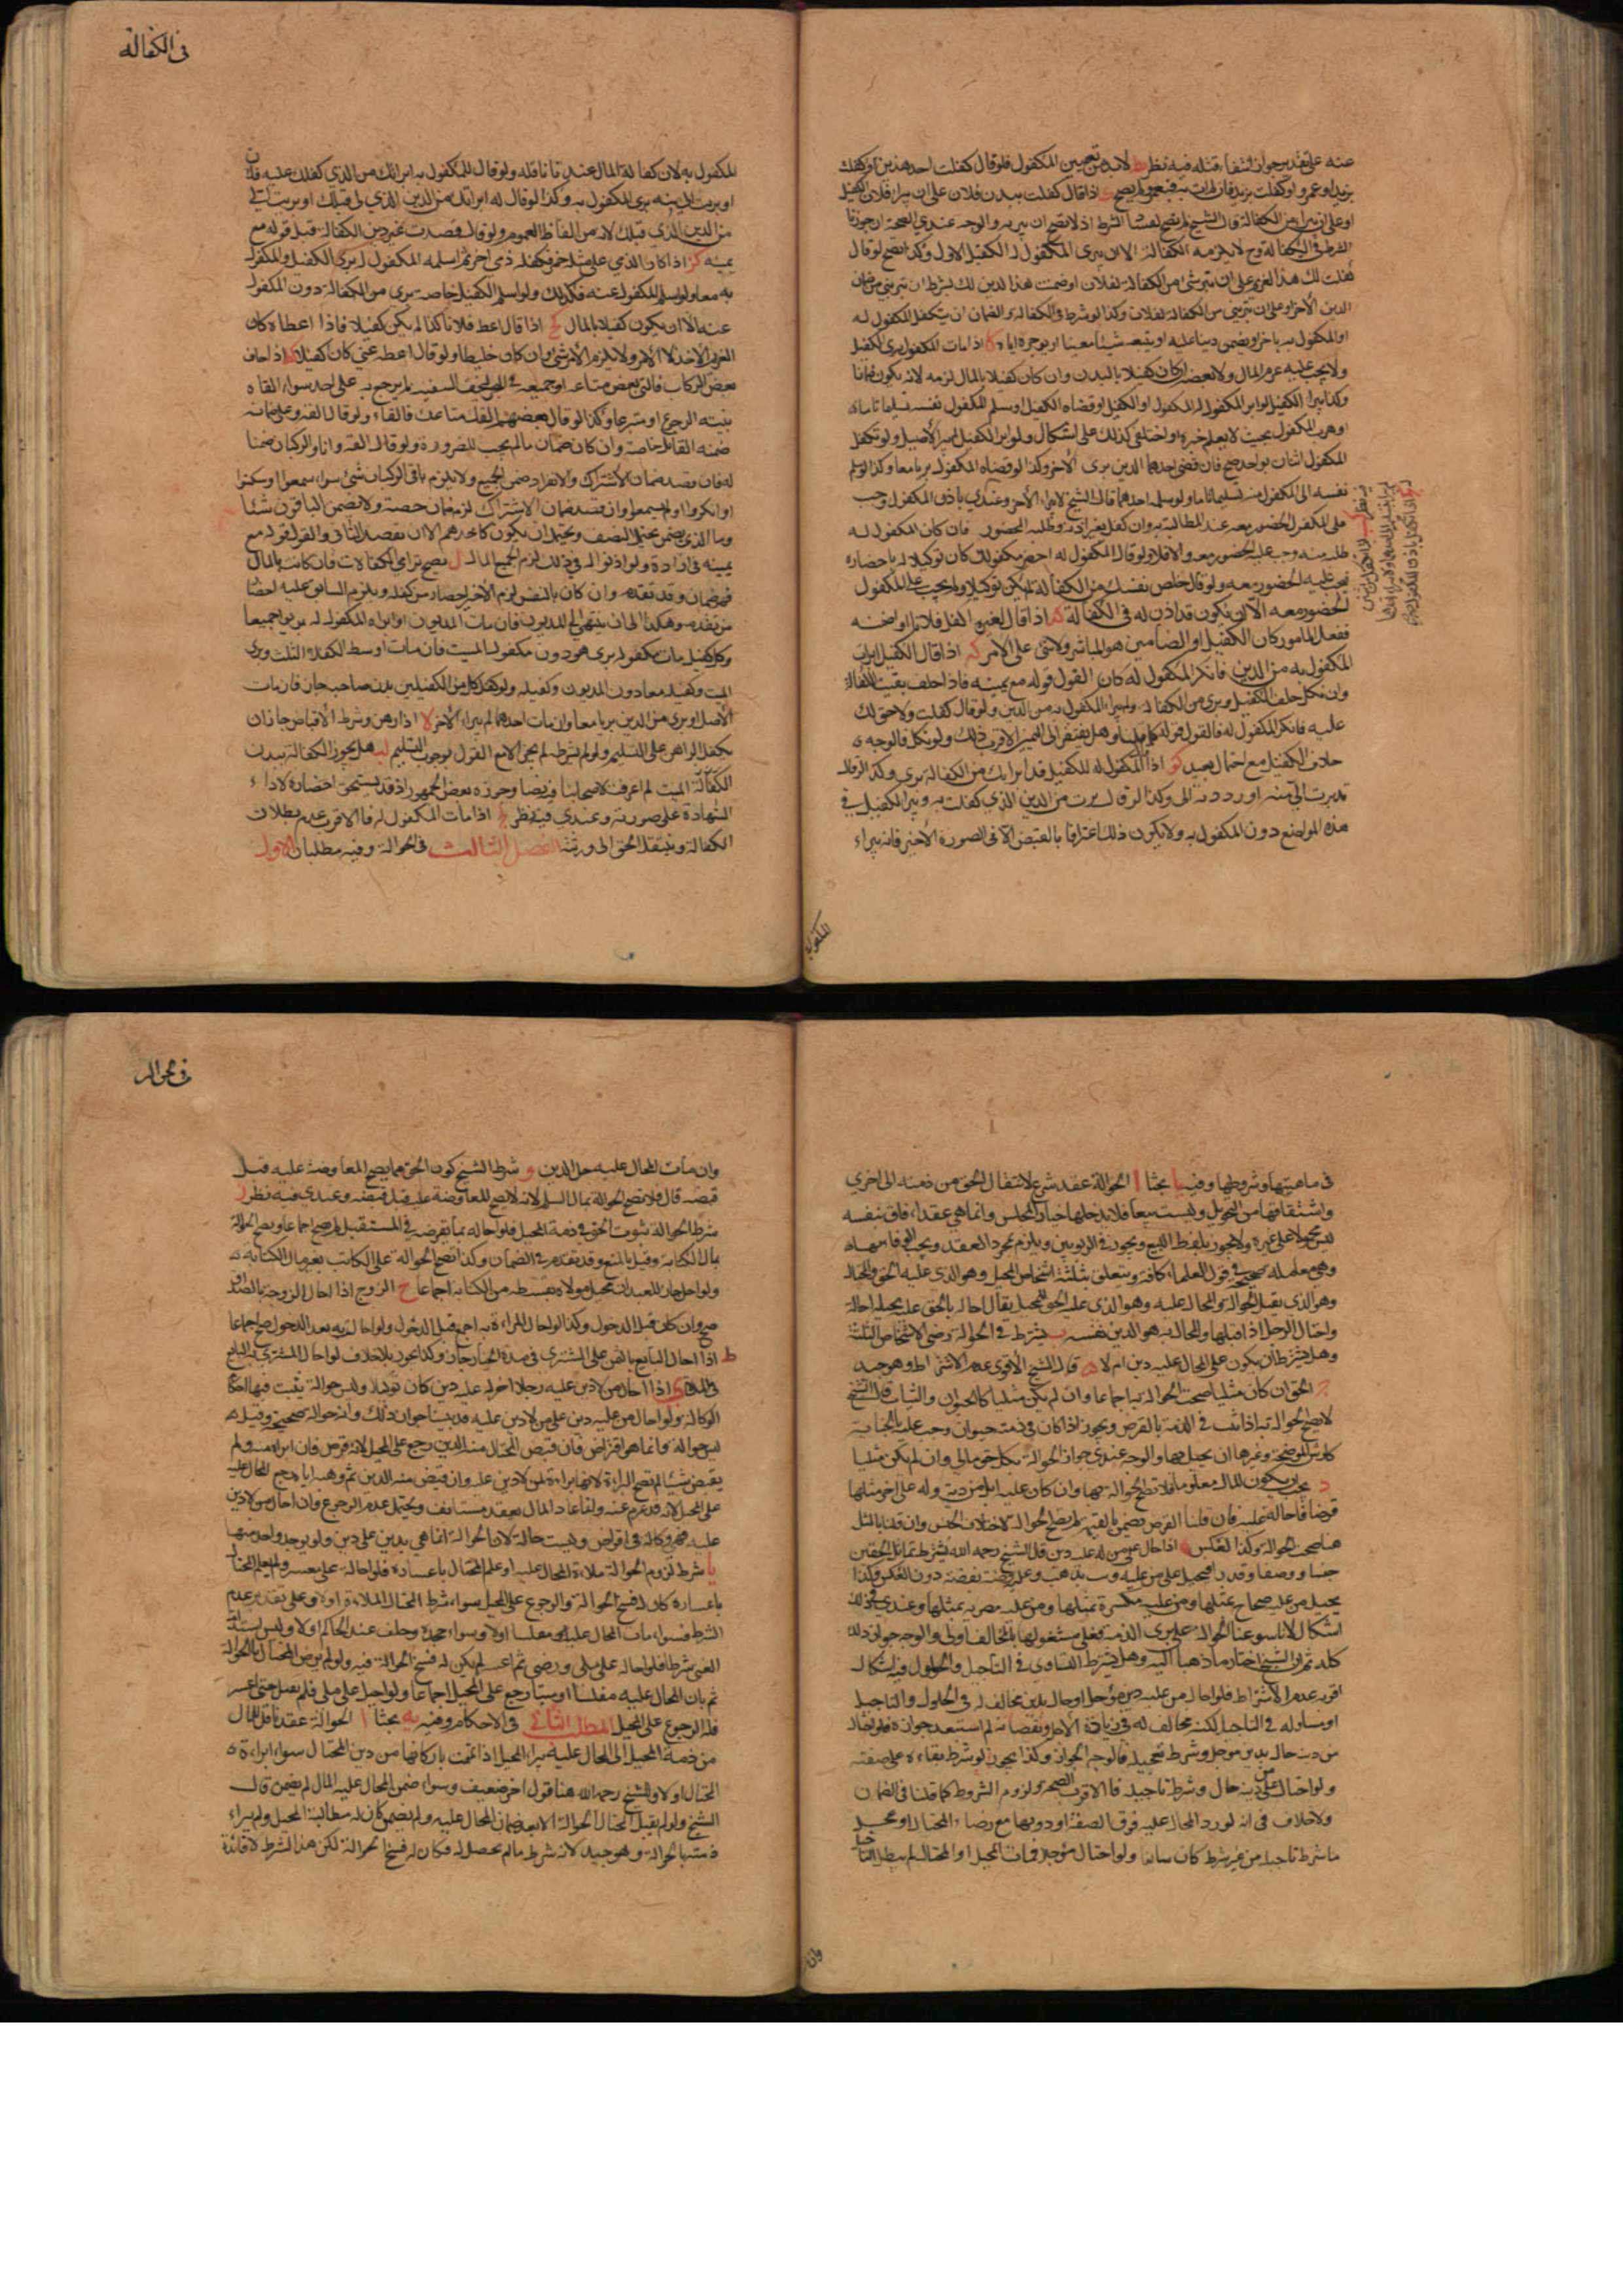 عنه على تقدير جوازه شفاء مثله فيه نظر لابد من تعيين المكفول فلو قال كفلت احد هذين او كفلت
بزيد او عمرو او كفلت بزيد فان لم ات به فبعمرو لم يصح اذا قال كفلت ببدن فلان على ان يبرا فلان الكفيل
او على ان تبرئه من الكفالة قال الشيخ لا يصح لفساد الشرط اذ لا يصح ان يبريه والوجه عندي الصحة ان جوزنا
الشرط في الكفالة وح لا يلزمه الكفالة الا ان يبرى المكفول له الكفيل الاول وكذا يصح لو قال
كفلت لك هذا الغريم على ان تبرئني من الكفالة لفلان او ضمنت هذا الدين لك بشرط ان تبريني من ضمان
الدين الاخر او على ان تبريني من الكفالة لفلان وكذا لو شرط في الكفالة والضمان ان يتكفل المكفول له
او المكفول به باخر او يضمن دينا عليه او يبيعه شيئا معينا او يوجره اياه كا اذا مات المكفول برى الكفيل
ولا يجب عليه غرم المال ولا بعضه وان كان كفيلا بالبدن وان كان كفيلا بالمال لزمه لانه يكون ضمانا
وكذا يبرا الكفيل لو ابرا المكفول له المكفول او الكفيل او قضاه الكفيل او سلم المكفول نفسه تسليما تاما
او هرب المكفول بحيث لا يعلم خبره او اختلفى كذلك على اشكال ولو ابرا الكفيل لم يبرا الاصيل ولو تكفل
المكفول اثنان بواحد صح فان قضى احدهما الدين برى الاخر وكذا لو قضاه المكفول بريا معا وكذا لو سلم
نفسه الى المكفول منه تسليما تاما ولو سلمه احدهما قال الشيخ لا يبرا الاخر وعندي باذن المكفول وجب
على المكفول الحضور معه عند المطالبة به وان كفل بغير اذنه وطلبه الحضور فان كان المكفول له
طلبه منه وجب عليه الحضور معه والا فلا ولو قال المكفول له احضر مكفولك كان توكيلا له باحضاره
يجب عليه الحضور معه ولو قال خلص نفسك من الكفالة لم يكن توكيلا ولم يجب على المكفول
الحضور معه الا ان يكون قد اذن له في الكفالة كد اذا قال لغيره اكفل فلانا او اضمنه
ففعل المامور كان الكفيل او الضامن هو المباشر ولا شئ على الامر كه اذا قال الكفيل ابرات
المكفول به من الدين فانكر المكفول له كان القول قوله مع يمينه فاذا حلف بقيت الكفالة
وان نكل حلف الكفيل وبرى من الكفالة ولم يبرا المكفول به من الدين ولو قال كفلت ولا حق لك
عليه فانكر المكفول له فالقول قوله وهل يفتقر الى اليمين الاقرب ذلك ولو نكل فالوجه
حلف الكفيل مع احتمال بعيد كو اذا قال المكفول له للكفيل قد ابراتك من الكفالة برى وكذا لو قال
قد برئت الى منه او رددته الى وكذا لو قال برئت من الدين الذي كفلت به ويبرا الكفيل في
هذه المواضع دون المكفول به ولا يكون ذلك اعترافا بالقبض الا في الصورة الاخيرة فانه يبراء
المكفول
في الكفالة
المكفول به لان كفالة المال عندنا ناقلة ولو قال للمكفول به ابراتك من الدين الذي كفلك عليه فلان
او برئت الي منه برى المكفول به وكذا لو قال له ابراتك من الدين الذي لي قبلك او برئت الي
من الدين الذي قبلك لانه من الفاظ العموم ولو قال قصدت غير دين الكفالة قبل قوله مع
يمينه كز اذا كان لذمي على مثله خمر فكفله ذمي اخر ثم اسلم المكفول له برى الكفيل والمكفول
به معا ولو اسلم المكفول عنه فكذلك ولو اسلم الكفيل خاصة برى من الكفالة دون المكفول
عنه الا ان يكون كفيلا بالمال كح اذا قال اعط فلانا كذا لم يكن كفيلا فاذا اعطاه كان
الغريم الاخذ لا الامر ولا يلزم الامر شئ وان كان خليطا ولو قال اعطه عني كان كفيلا كط اذا خاف
بعض الركاب فالقى بعض متاعه او جميعه في البحر لتخف السفينة لم يرجع به على احد سواء القاه
بنية الرجوع او متبرعا وكذا لو قال بعضهم الق متاعك فالقاه ولو قال القه وعلي ضمانه
ضمنه القائل خاصة وان كان ضمان ما لم يجب للضرورة ولو قال القه وانا والركبان ضمنا
له فان قصد ضمان الاشتراك والانفراد ضمن الجميع ولا يلزم باقي الركبان شئ سواء سمعوا وسكتوا
او انكروا او لم يسمعوا وان قصد ضمان الاشتراك لزمه ضمان حصته ولا يضمن الباقون شئا
وما الذي يضمن يحتمل النصف ويحتمل ان يكون كاحدهم الا ان يقصد الثاني والقول قوله مع
يمينه في ارادة ولو اذنوا له في ذلك لزم الجميع المال ل يصح ترامي الكفالات فان كانت بالمال
فهو ضمان وقد تقدم وان كان بالنفس لزم الاخير احضار من كفله ويلزم السابق عليه احضار
من تقدمه وهكذا الى ان ينتهى الى المديون فان مات المديون او ابراه المكفول له برىوا جميعا
وكل كفيل مات مكفوله برى هو دون مكفول الميت فان مات اوسط الكفلاء الثلث وبرى
الميت وكفيله معا دون المديون وكفيله ولو كفل كل من الكفيلين بدن صاحبه جاز فان مات
الاصل او برى من الدين بريا معا وان مات احدهما لم يبراء الاخر لا اذا رهن وشرط الاقباض جاز ان
يكفل الراهن على التسليم ولو لم يشرط لم يجز الا مع القول بوجوب التسليم لب هل يجوز الكفالة ببدن
الميت لم اعرف لاصحابنا فيه نصا وجوزه بعض الجمهور اذ قد يستحق احضاره لاداء
الشهادة على صورته وعندي فيه نظر لج اذا مات المكفول له فالاقرب عدم بطلان
الكفالة وينتقل الحق الى ورثته الفصل الثالث في الحوالة وفيه مطلبان الاول
في ماهيتها وشروطها وفيه يا بحثا ا الحوالة عقد شرع لانتقال الحق من ذمة الى اخرى
واشتقاقها من التحويل وليست بيعا فلا يدخلها خيار المجلس وانما هي عقد ارفاق بنفسه
ليس محمولا على غيره ولا يجوز بلفظ البيع ويجوز في الربويين ويلزم بمجرد العقد ويجب الوفا بها
وهي معاملة صحيحة في قول العلماء كافة ويتعلق بثلثة اشخاص المحيل وهو الذي عليه الحق والمحتال
وهو الذي يقبل الحوالة والمحال عليه وهو الذي عليه الحق للمحيل يقال احاله بالحق عليه يحيله احالة
واحتال الرجل اذا قبلها والمحال به هو الدين نفسه ب يشترط في الحوالة رضى الاشخاص الثلثة
وهل يشترط ان يكون على المحال عليه دين ام لا قال الشيخ الاقوى عدم الاشتراط وهو جيد
ج الحق ان كان مثليا صحت الحوالة به اجماعا وان لم يكن مثليا كالحيوان والثياب قال الشيخ
لا يصح الحوالة به اذا ثبت في الذمة بالقرض ويجوز اذا كان في ذمته حيوان وجب عليه بالجناية
كارش الموضحة وغيرها ان يحيل بها والوجه عندي جواز الحوالة بكل حق مالي وان لم يكن مثليا
د يجب ان يكون المال معلوما فلا تصح الحوالة بها وان كان عليه ابل من دية وله على اخر مثلها
قرضا فاحاله عليه فان قلنا القرض يضمن بالقيمة لم يصح الحوالة لاختلاف الجنس وان قلنا بالمثل
هنا صحت الحوالة وكذا العكس ه اذا احال على من له عليه دين قال الشيخ رحمه الله يشترط تماثل الحقين
جنسا ووصفا وقدرا فيحيل على من عليه ذهب بذهب وعليه فضة بفضة دون العكس وكذا
يحيل من عليه صحاح بمثلها ومن عليه مكسرة بمثلها ومن عليه مصرية بمثلها وعندي في ذلك
اشكال لانا سوغنا الحوالة على برى الذمة فعلى مشغولها بالمخالف اولى والوجه جواز ذلك
كله ثم ان الشيخ اختار ما ذهبنا اليه وهل يشترط التساوي في التاجيل والحلول فيه اشكال
اقربه عدم الاشتراط فلو احاله من عليه دين مؤجل او حال بدين مخالف له في الحلول والتاجيل
او مساو له في التاجيل لكنه مخالف له في زيادة الاجل ونقصانه لم استبعد جوازه فلو احال
من دينه حال بدين مؤجل وشرط تعجيله فالوجه الجواز وكذا يجوز لو شرط بقاءه على صفته
ولو احتال على من دينه حال وشرط تاجيله فالاقرب الصحة ولزوم الشروط كما قلنا في الضمان
ولا خلاف في انه لو رد المحال عليه فوق الصفة او دونها مع رضاء المحتال او عجل
ما شرط تاجيله من غير شرط كان سائغا ولو احتال مؤجلا فمات المحيل او المحتال لم يبطل التاجيل
وان
في الحوالة
وان مات المحال عليه حل الدين و شرط الشيخ كون الحق مما يصح المعاوضة عليه قبل
قبضه قال فلا تصح الحوالة بمال السلم لانه لا يصح المعاوضة عليه قبل قبضه وعندي فيه نظر ز
شرط الحوالة ثبوت الحق في ذمة المحيل فلو احاله بما يقرضه في المستقبل لم يصح اجماعا ويصح الحوالة
بمال الكتابة وقيل بالمنع وقد تقدم في الضمان وكذا تصح الحوالة على المكاتب بغير مال الكتابة
ولو احل جاز للعبد ان يحيل مولاه بقسطه من الكتابة اجماعا ح الزوج اذا احال الزوجة بالصداق
صح وان كان قبل الدخول وكذا لو احال المراة به اجنبي قبل الدخول ولو احالته به بعد الدخول صح اجماعا
ط اذا احال البايع بالثمن على المشترى في مدة الخيار جاز وكذا يجوز بلا خلاف لو احال المشترى به البايع
ي اذا احال من لا دين عليه رجلا اخر له عليه دين كان توكيلا وليس حوالة يثبت فيها احكام
الوكالة ولو احال من عليه دين على من لا دين عليه قد بينا جواز ذلك وانه حوالة صحيحة وقيل
ليس حوالة وانما هو اقتراض فان قبض المحتال منه الدين رجع على المحيل لانه قرض فان ابراه منه ولم
يقبض شيئا لم تصح البراءة لانها براءة لمن لا دين عليه وان قبض منه الدين ثم وهبه اياه رجع المحال عليه
على المحيل لانه قد غرم عنه وانما عاد المال بعقد مستانف ويحتمل عدم الرجوع وان احال من لا دين
عليه فهو وكالة في اقتراض وليست حالة لان الحوالة انما هي بدين على دين ولم يوجد واحد منهما
يا شرط لزوم الحوالة ملاءة المحال عليه او علم المحتال باعساره فلو احاله على معسر ولم يعلم المحتال
باعساره كان له فسخ الحوالة والرجوع على المحيل سواء شرط المحتال الملاءة او لا وعلى تقدير عدم
الشرط فسواء مات المحال عليه مفلسا او لا وسواء جحده وحلف عند الحاكم او لا وليس استدامة
الغنى شرطا فلو احاله على ملي ورضي ثم اعسر لم يكن له فسخ الحوالة فيه ولو لم يرض المحتال بالحوالة
ثم بان المحال عليه مفلسا او ميتا رجع على المحيل اجماعا ولو احيل على ملي فلم يقبل حتى اعسر
فله الرجوع على المحيل المطلب الثاني في الاحكام وفيه يه بحثا ا الحوالة عقد ناقل للمال
من ذمة المحيل الى المحال عليه يبرا المحيل اذا تمت باركانها من دين المحتال سواء ابراءه
المحتال او لا وللشيخ رحمه الله هنا قول اخر ضعيف وسواء ضمن المحال عليه المال لم يضمن قال
الشيخ ولو لم يقبل المحتال الحوالة الا بعد ضمان المحال عليه ولم يضمن كان له مطالبة المحيل ولم يبراء
ذمته بالحوالة وهو جيد لانه شرط ما لم يحصل له فكان له فسخ الحوالة لكن هذا الشرط لا فائدة